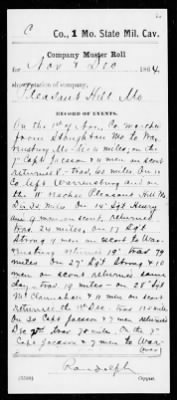 C Co., 1 Mo. State Mil. Cav.
Company Muster Roll
for Nov & Dec 1864.
station of company,
Pleasant Hill Mo
RECORD OF EVENTS.
On the 1st of Nov. Co marched
from Mo to War-
rensburg Mo miles, on the
7th Capt Jackson & men on scout
returned 8" trav. 65 miles On 10
Co left Warrensburg and on
the 11" reached Pleasant Hill Mo
Dis 35 miles. On 14" Sgt Henry
and 9 men on scout, returned
trav 24 miles, on 17 Sgt
Strong 9 men on scout to War-
rensburg returned 19" trav 79
miles. On 27" Sgt Strong & 10
men on scout returned same
day, trav 19 miles- on 28" Sgt
McClanahan & 9 men on scout
returned the 1st Dec. trav 110 miles
On 30 Capt Jackson & 7 men returned
Dec 2nd trav 70 miles. On the 7"
Capt Jackson & 7 men to War-
(over)
Randolph
(556)
Copyist.